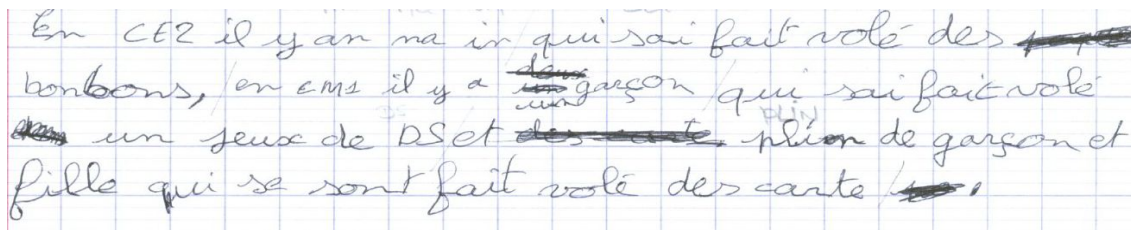 En CE2 il y an na in qui sai fait volé des
bonbons, en cm1 il y a un garçon qui sai fait volé
un jeux de DS et plion de garçon et
fille qui se sont fait volé des carte.